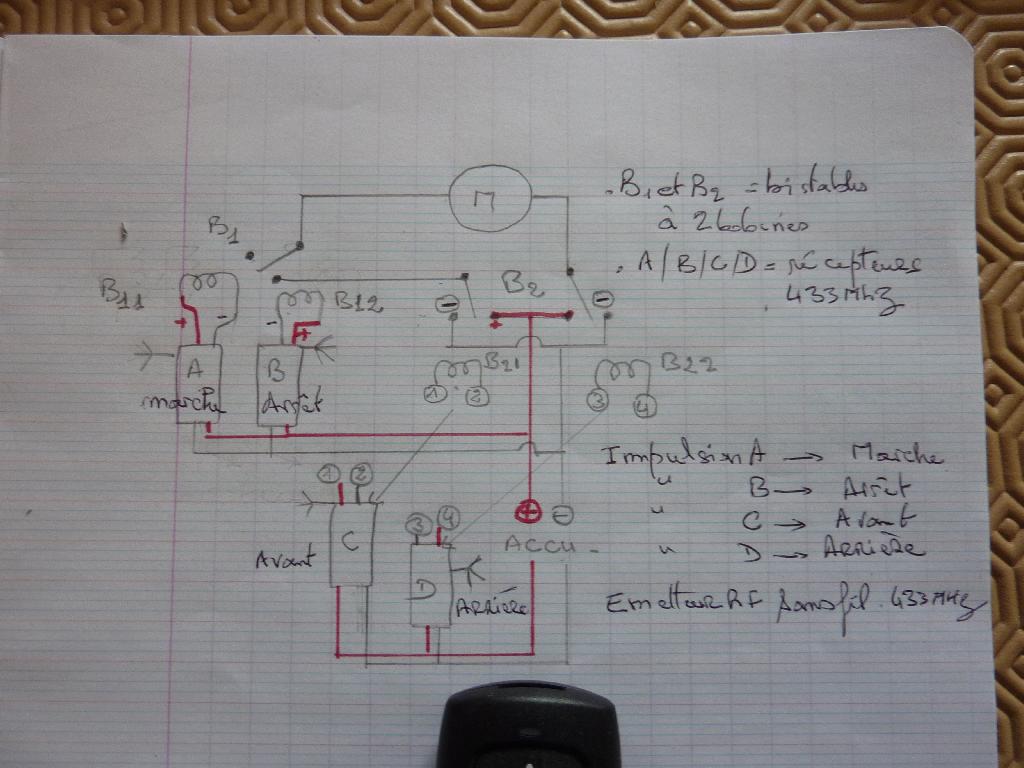 M
B1
B11
B12
B2
+ -
- +
⊖ ⊖
+
A
marche
B
Arrêt
B21
① ②
B22
③ ④
① ②
C
Avant
③ ④
D
ARRIÈRE
⊕ ⊖
ACCU -
. B1 et B2 = bistables
à 2 bobines
. A/B/C/D = récepteurs
433 MHz
Impulsion A → Marche
" B → Arrêt
" C → Avant
" D → ARRIÈRE
Emetteur RF sans fil 433 MHz